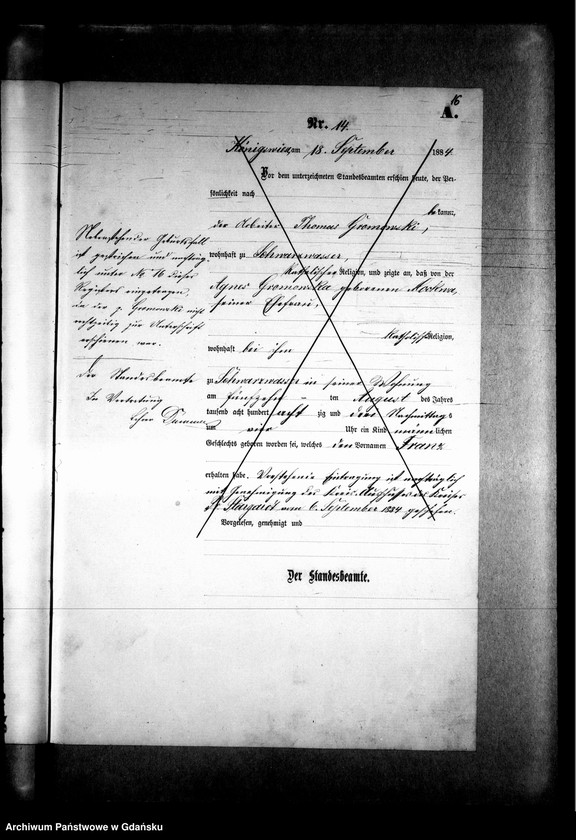 16
A.
Nr. 14.
Königswiese am 18. September 1884.
Vor dem unterzeichneten Standesbeamten erschien heute, der Per-
sönlichkeit nach
bekannt,
der Arbeiter Thomas Gromowski,
wohnhaft zu Schwarzwasser,
katholischer Religion, und zeigte an, daß von der
Agnes Gromowska geborenen Mockwa,
seiner Ehefrau,
katholischer Religion,
wohnhaft bei ihm
zu Schwarzwasser in seiner Wohnung
am fünfzehnten August des Jahres
tausend acht hundert acht zig und vier Nachmittags
um vier Uhr ein Kind männlichen
Geschlechts geboren worden sei, welches den Vornamen Franz
erhalten habe. Vorstehende Eintragung ist nachträglich
mit Genehmigung des Kreis-Ausschusses des Kreises
Pr. Stargardt vom 6. September 1884 geschehen.
Vorgelesen, genehmigt und
Der Standesbeamte.
Nebenstehender Geburtsfall
ist gestrichen und nachträg-
lich unter No 16 dieses
Registers eingetragen,
da der p. Gromowski nicht
rechtzeitig zur Unterschrift
erschienen war.
Der Standesbeamte
In Vertretung
Archiwum Państwowe w Gdańsku